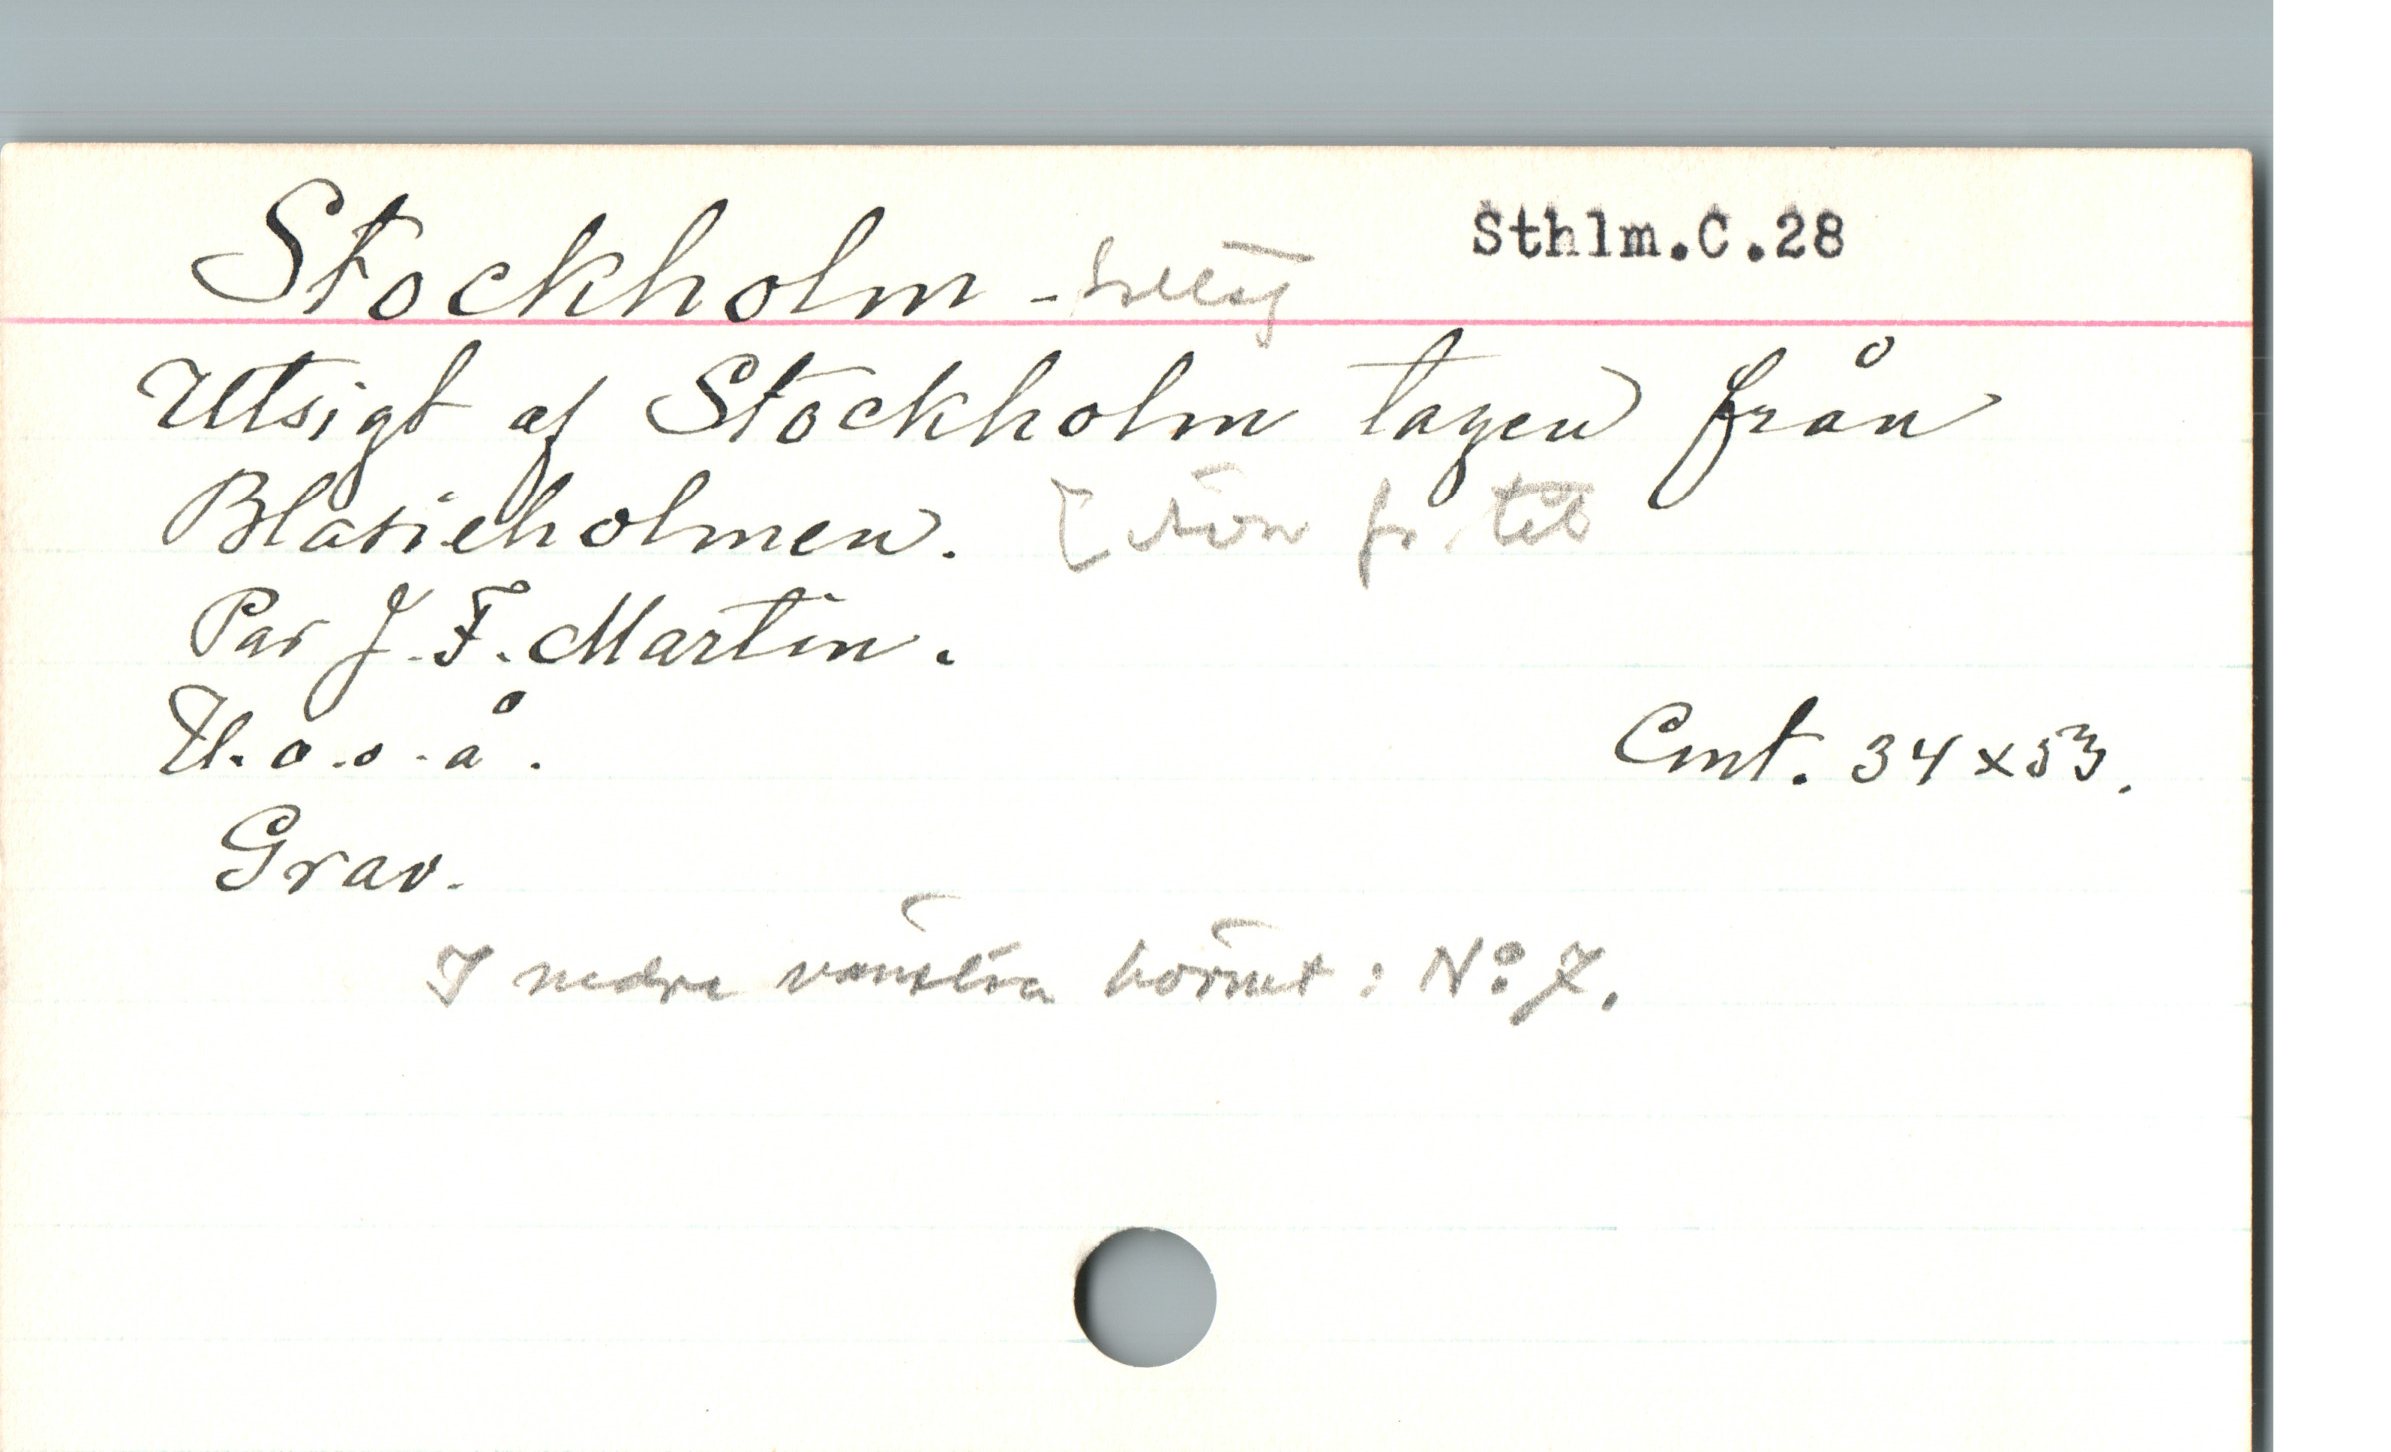 Stockholm -
Sthlm.C.28
Utsigt af Stockholm tagen från
Blasieholmen. [
Par J. F. Martin.
U. o. o. å.
Cmt. 34 x 53.
Grav.
I nedre vänstra hörnet: No 7.